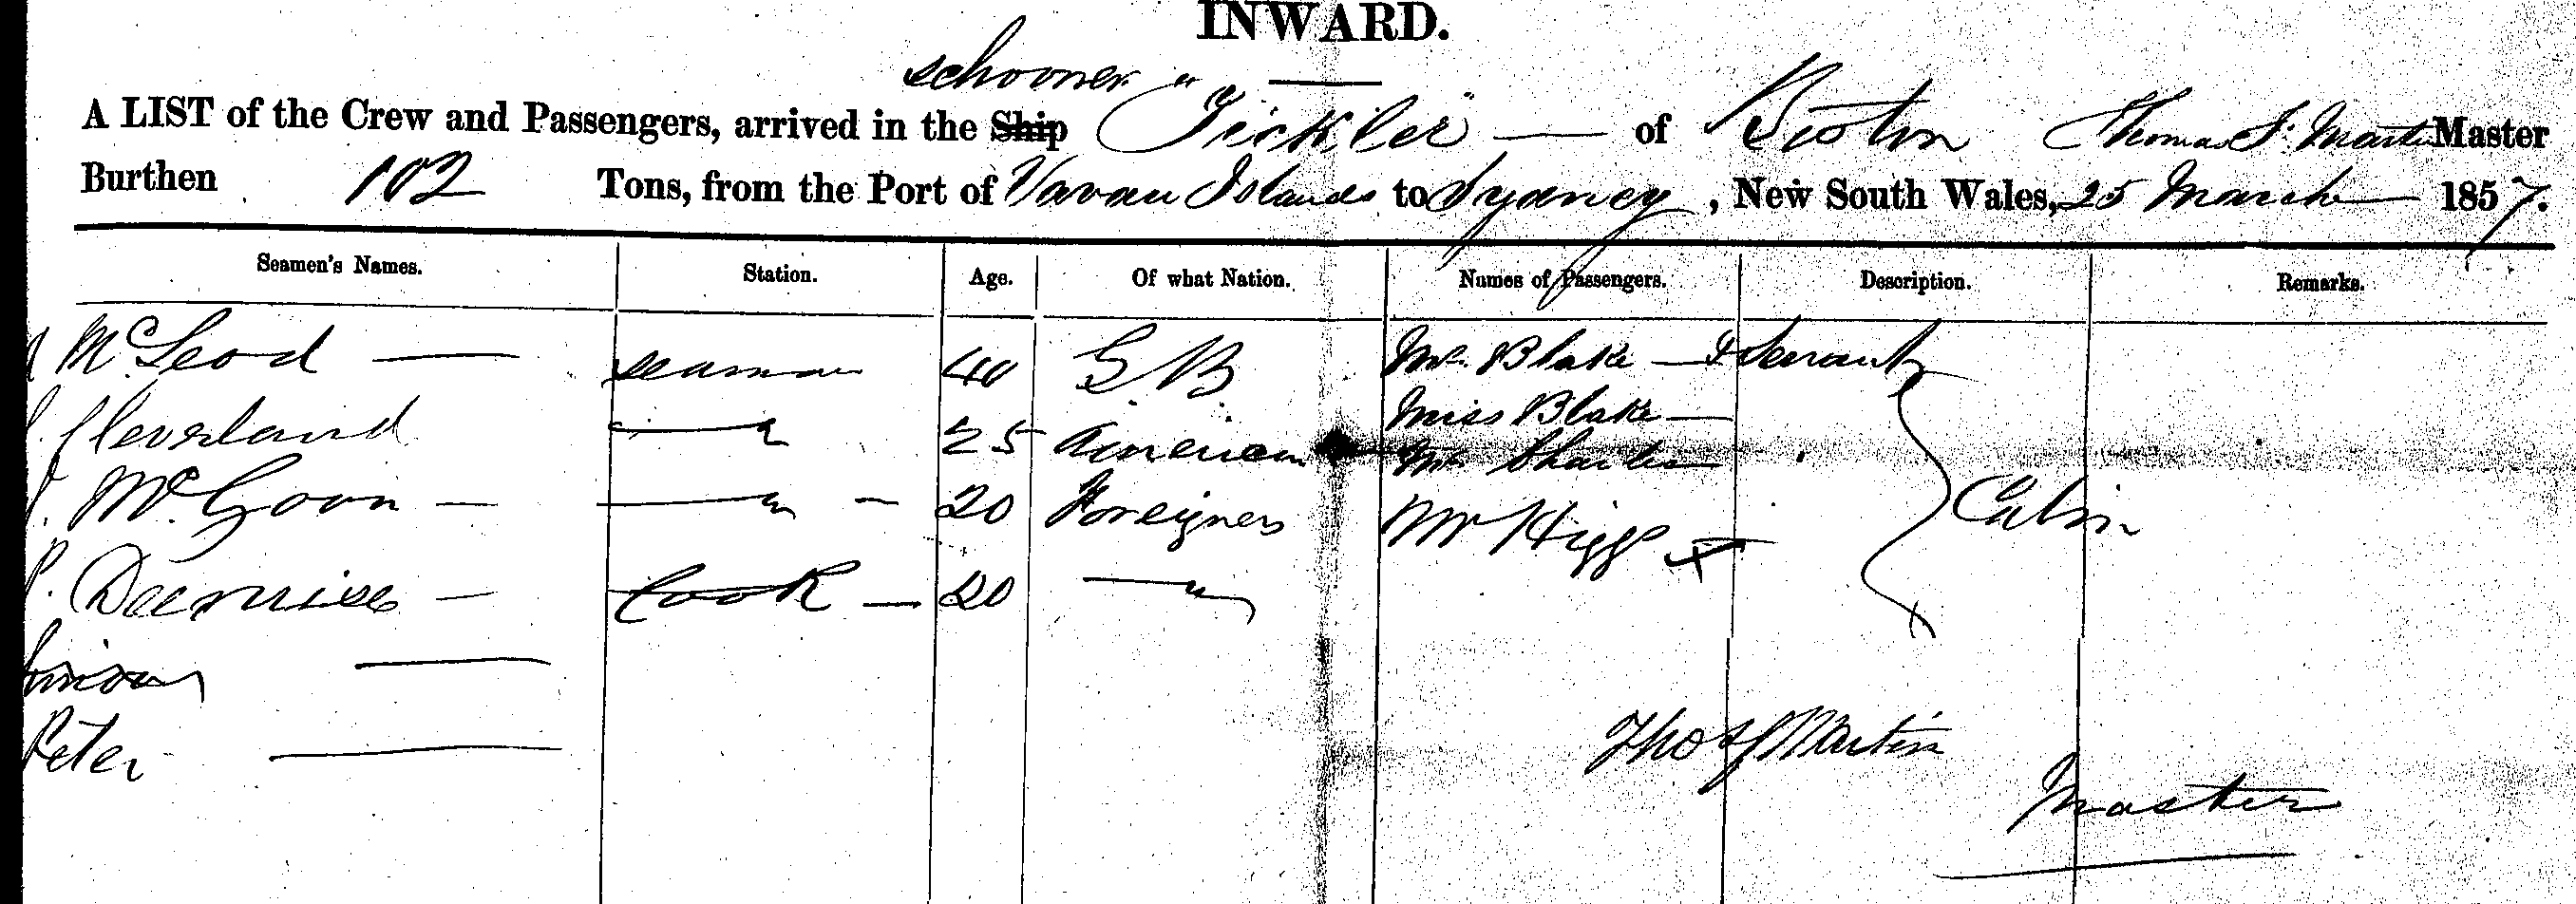 INWARD.
schooner
A LIST of the Crew and Passengers, arrived in the Ship "Tickler" — of Boston Thomas S. Martin Master
Burthen 102 Tons, from the Port of Vavau Islands to Sydney, New South Wales, 25 March 1857.
Seamen's Names. Station. Age. Of what Nation. Names of Passengers. Description. Remarks.
McLeod — seaman 40 G.B. Mr. Blake — & Servant
Miss Blake —
Cleverland — " 25 American Mr Charles
McGoon — — " — 20 Foreigners Mr Higgs x Cabin
Cook — 20 — "
Peter —
Thos S Martin
Master